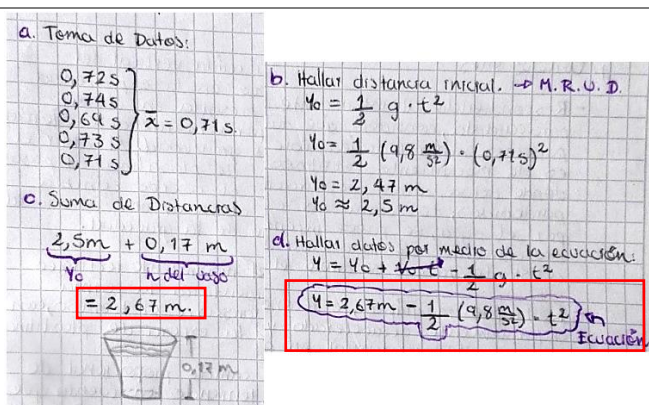 a. Toma de Datos:
0,72 s
0,74 s
0,64 s
0,73 s
0,71 s
x̄ = 0,71 s.
c. Suma de Distancias
2,5m + 0,17 m
Yo h del vaso
= 2,67 m.
0,17 m
b. Hallar distancia inicial. → M.R.U.D.
Yo = 1/2 g · t²
Yo = 1/2 (9,8 m/s²) · (0,71s)²
Yo = 2,47 m
Yo ≈ 2,5 m
d. Hallar datos por medio de la ecuación:
Y = Yo + Vo·t - 1/2 g · t²
Y = 2,67m - 1/2 (9,8 m/s²) · t²
Ecuación